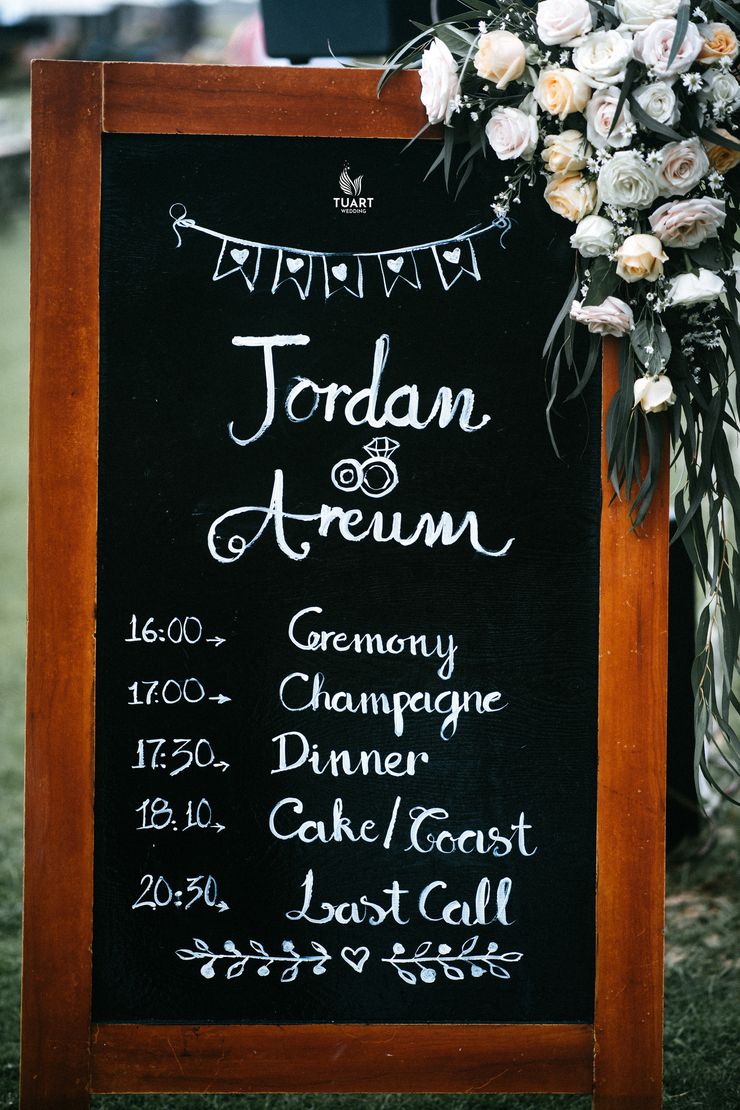 TUART
WEDDING
Jordan
Areum
16:00→ Ceremony
17:00→ Champagne
17:30→ Dinner
18:10→ Cake/Toast
20:30→ Last Call